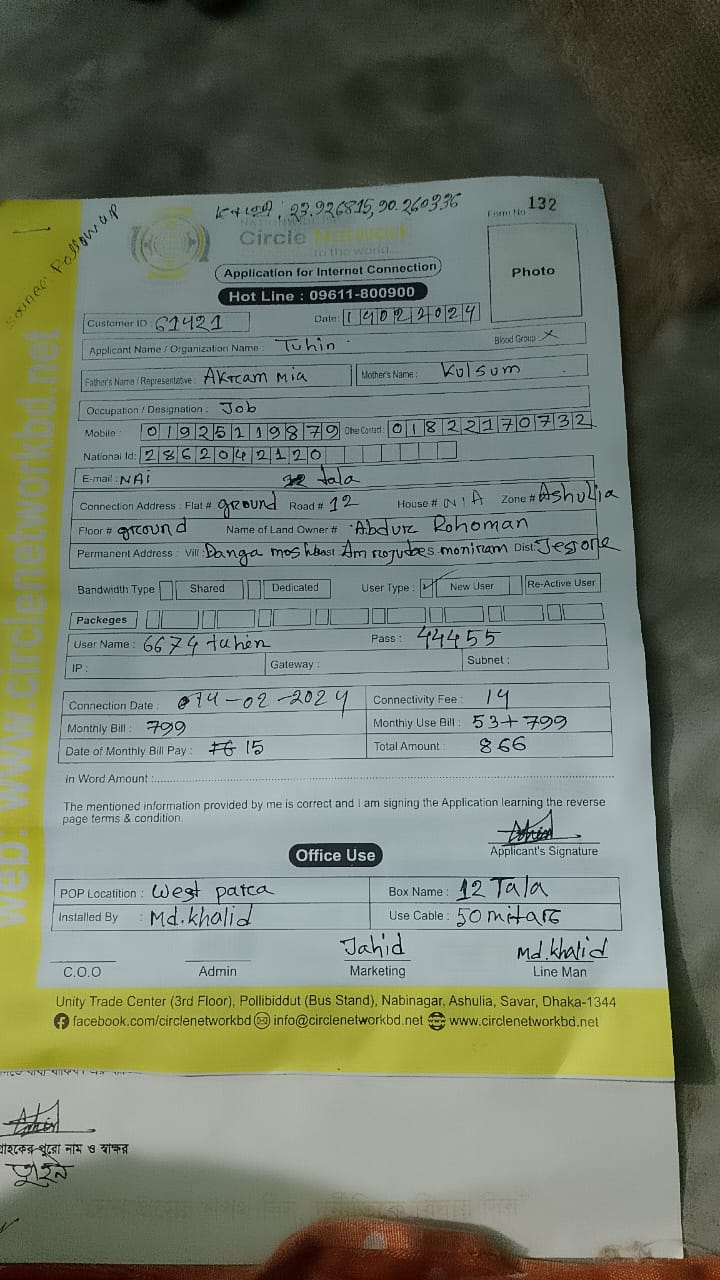 23.926815,90.260336
Form No 132
Circle Network
to the world...
Application for Internet Connection
Photo
Hot Line : 09611-800900
Customer ID : 61421 Date: 14022024
Applicant Name / Organization Name : Tuhin Blood Group : X
Father's Name / Representative : Akram Mia Mother's Name : Kulsum
Occupation / Designation : Job
Mobile : 01925119879 Other Contact : 01822170732
National Id: 2862042120
E-mail : NAi tala
Connection Address : Flat # ground Road # 12 House # N/A Zone # Ashulia
Floor # ground Name of Land Owner # Abdur Rohoman
Permanent Address : Vill: Danga moniram Dist: Jessore
Bandwidth Type Shared Dedicated User Type : ✓ New User Re-Active User
Packeges
User Name : 6674 tuhin Pass : 44455
IP : Gateway : Subnet :
Connection Date : 14-02-2024 Connectivity Fee : 14
Monthly Bill : 799 Monthly Use Bill : 53+799
Date of Monthly Bill Pay : 15 Total Amount : 866
in Word Amount :
The mentioned information provided by me is correct and I am signing the Application learning the reverse
page terms & condition.
Applicant's Signature
Office Use
POP Locatition : West para Box Name : 12 Tala
Installed By : Md.khalid Use Cable : 50 mitare
Jahid Md.khalid
C.O.O Admin Marketing Line Man
Unity Trade Center (3rd Floor), Pollibiddut (Bus Stand), Nabinagar, Ashulia, Savar, Dhaka-1344
facebook.com/circlenetworkbd info@circlenetworkbd.net www.circlenetworkbd.net
web: www.circlenetworkbd.net
Followup
গ্রাহকের পুরো নাম ও স্বাক্ষর
তুহিন